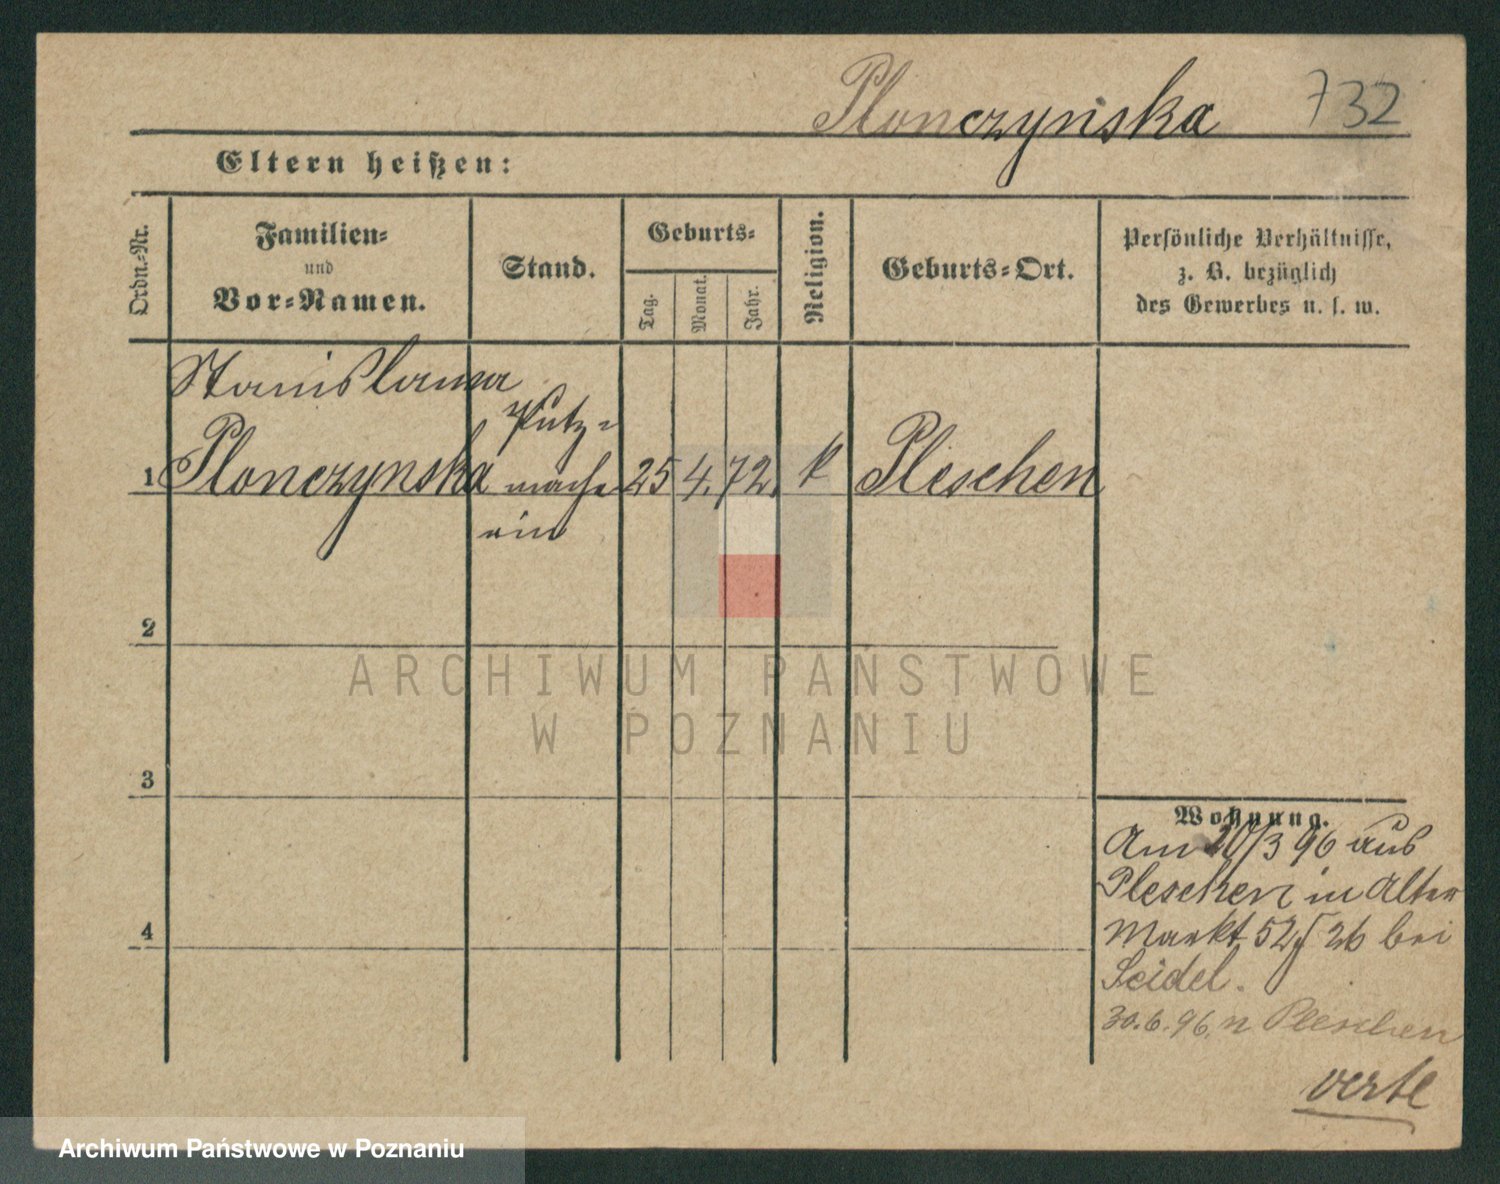 Plonczynska 732
Eltern heißen:
Ordn.-Nr.
Familien-
und
Vor-Namen.
Stand.
Geburts-
Tag.
Monat.
Jahr.
Religion.
Geburts-Ort.
Persönliche Verhältnisse,
z. B. bezüglich
des Gewerbes u. s. w.
Stanislawa
Putz-
1 Plonczynska mache 25 4. 72. k Pleschen
rin
2
ARCHIWUM PAŃSTWOWE
W POZNANIU
3
Wohnung.
Am 20/3 96 aus
Pleschen in Alter
Markt 52/ 26 bei
Seidel.
30.6.96. n Pleschen
4
verte
Archiwum Państwowe w Poznaniu